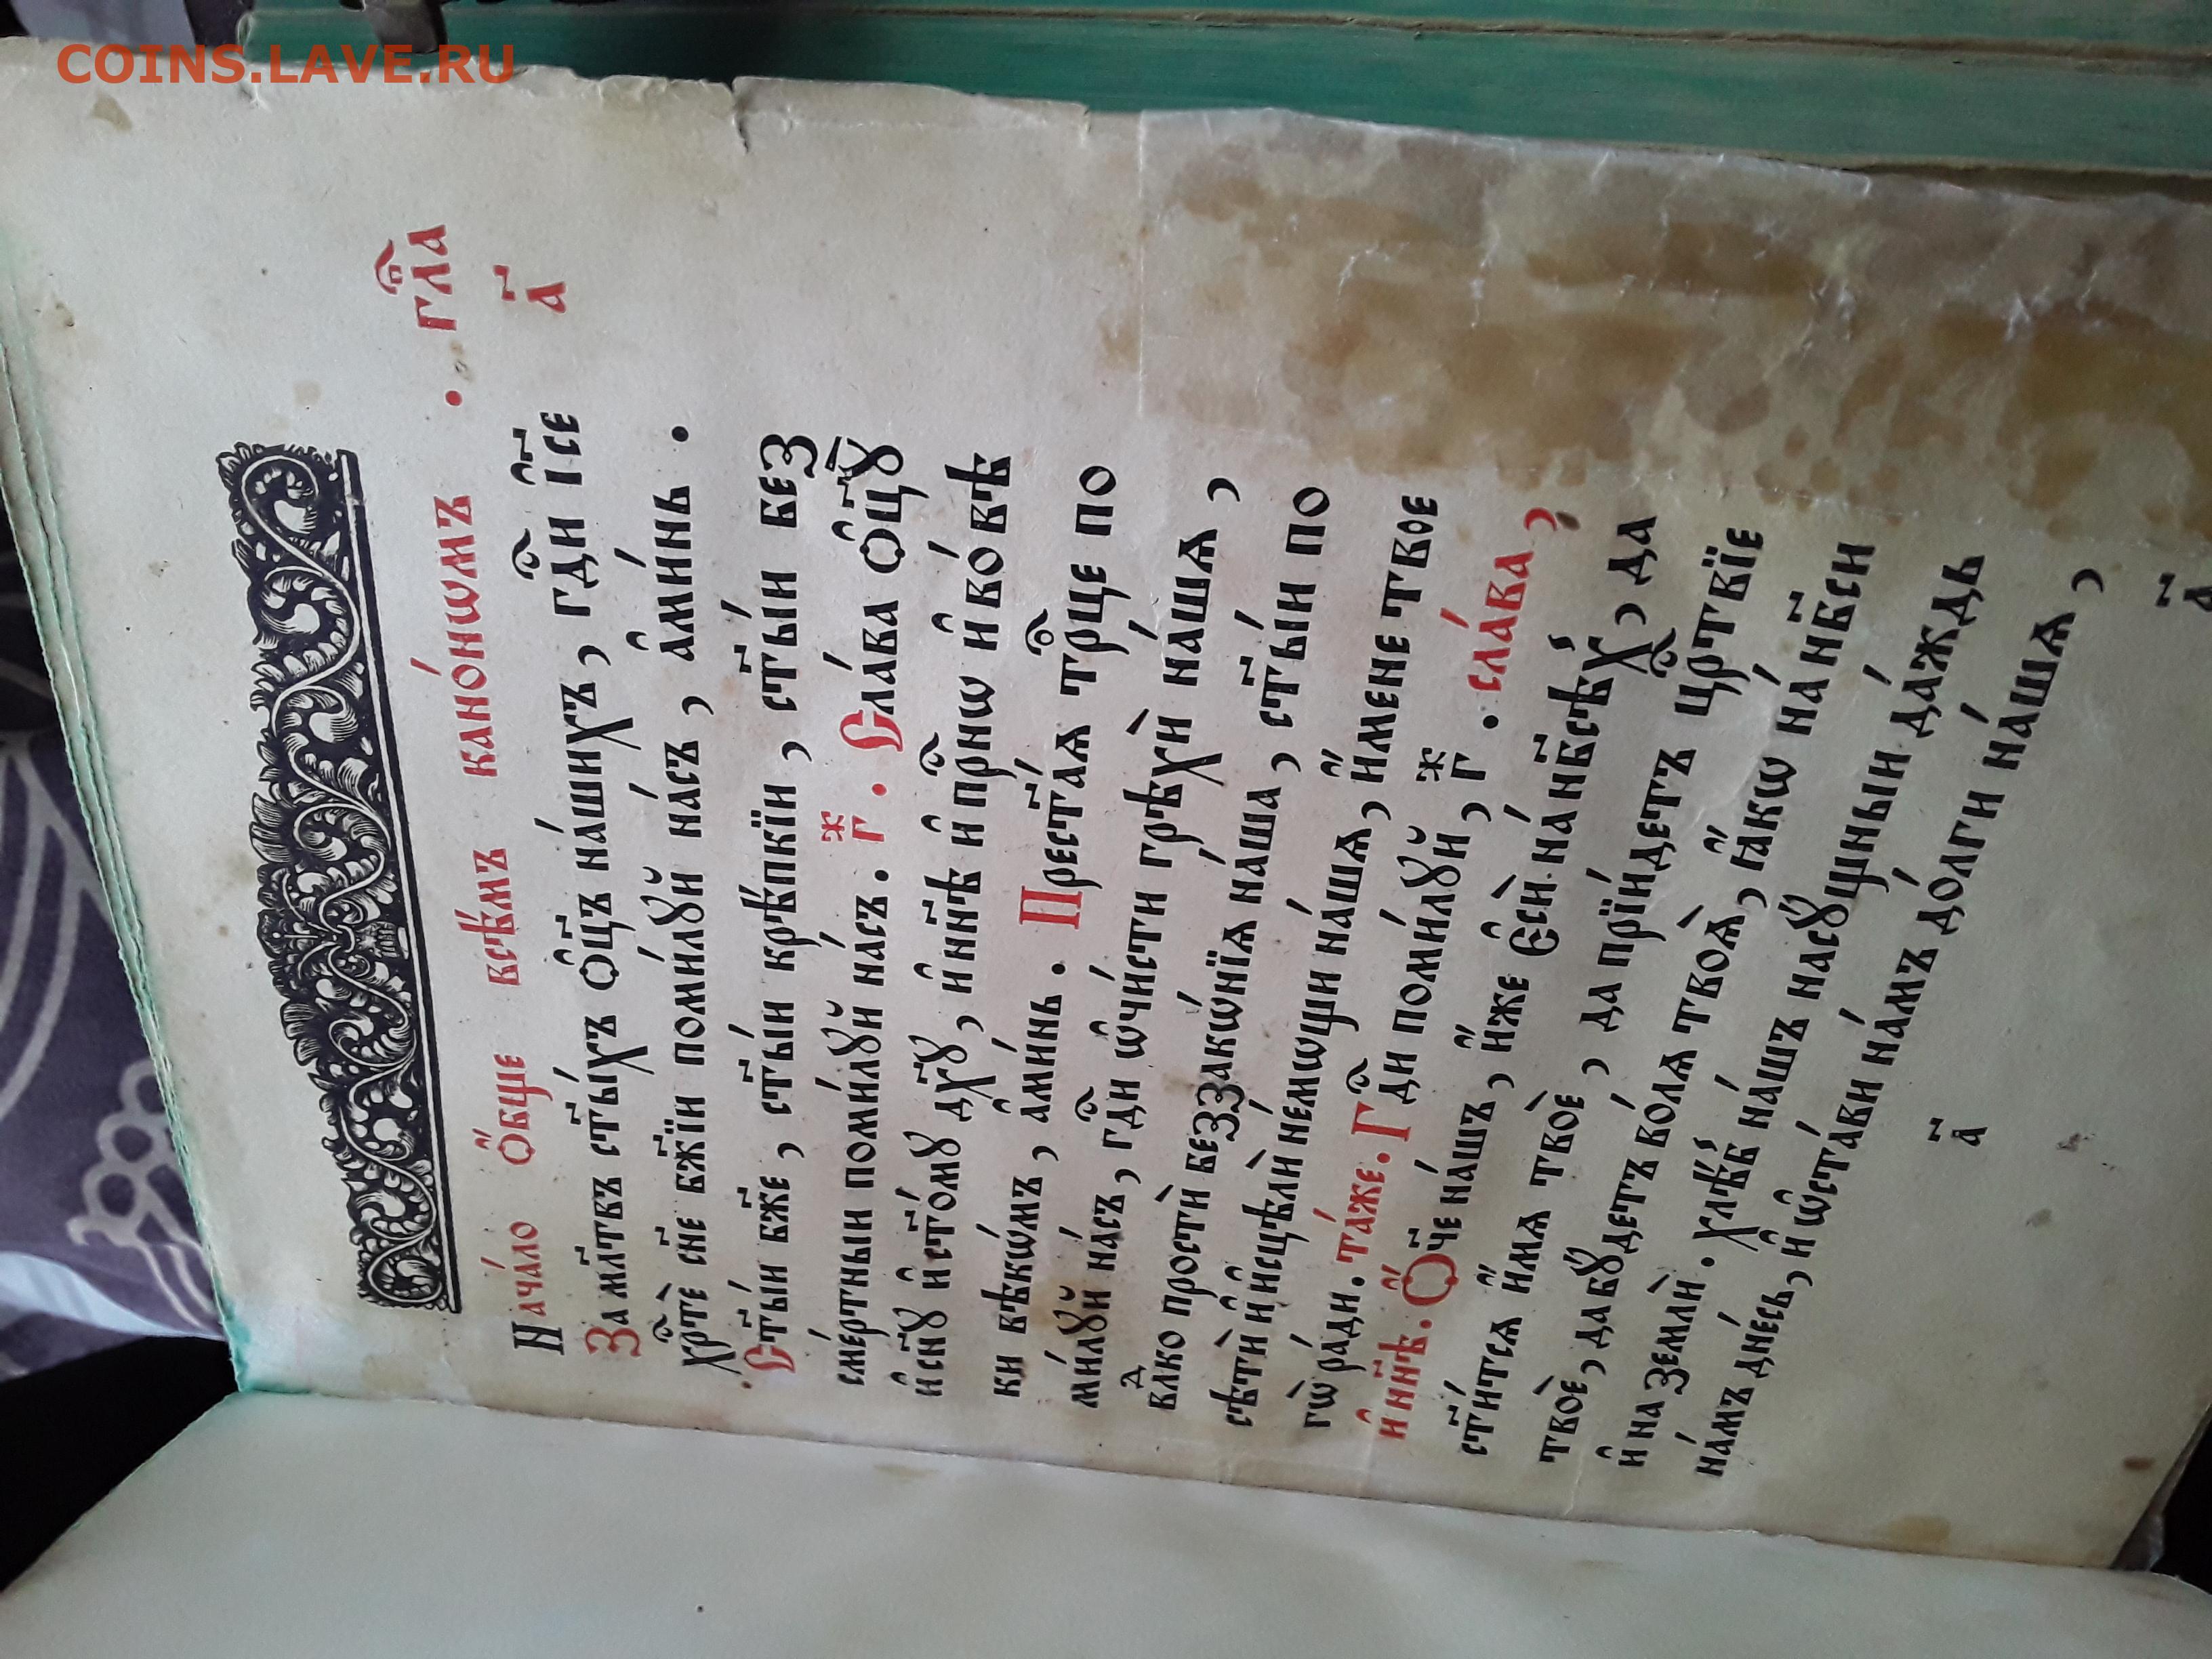 COINS.LAVE.RU
Нача́ло Ѻ҆́бще всѣ́мъ кано́нѡмъ . гла҇
а҃
За мл҃твъ ст҃ы́хъ ѻ҆ц҃ъ на́шихъ , гд҇и і҆с҃е
хрт҇ѐ сн҃е бж҃їи поми́лꙋй на́съ , а҆ми́нь .
Ст҃ы́и бж҃е , ст҃ы́и крѣ́пкїи , ст҃ы́и без
сме́ртныи поми́лꙋй на́съ . г҃ж . Сла́ва ѻ҆ц҃ꙋ̀
и҆ сн҃ꙋ и҆ ст҃о́мꙋ дх҃ꙋ , и҆ нн҃ѣ и҆ прн҇ѡ и҆ во́ вѣ
ки вѣкѡ́мъ , а҆ми́нь . Прест҃а́ѧ трц҇е по
ми́лꙋй на́съ , гд҇и ѡ҆чи́сти грѣхѝ на́шѧ ,
влⷣко простѝ беззакѡ́нїѧ на́ша , ст҃ы́и по
сѣтѝ и҆ и҆сцѣлѝ не́мѡщи на́шѧ , и҆́мене твое
гѡ̀ ра́ди . та́же . Гд҇и поми́лꙋй , г҃ж . сла́ва ,
и҆ нн҃ѣ . Ѻ҆́ч҃е на́шъ , и҆́же є҆сѝ на́ нб҃сѣ́хъ , да
ст҃и́тсѧ и҆́мѧ твоѐ , да прїи́детъ црт҇вїе
твоѐ , да бꙋ́детъ во́лѧ твоѧ̀ , ꙗ҆́кѡ на́ нб҃си
и҆ на землѝ . хлѣ́бъ на́шъ насꙋ́щныи да́ждь
на́мъ дне́сь , и҆ ѡ҆ста́ви на́мъ до́лги на́шѧ ,
а҃
а҃